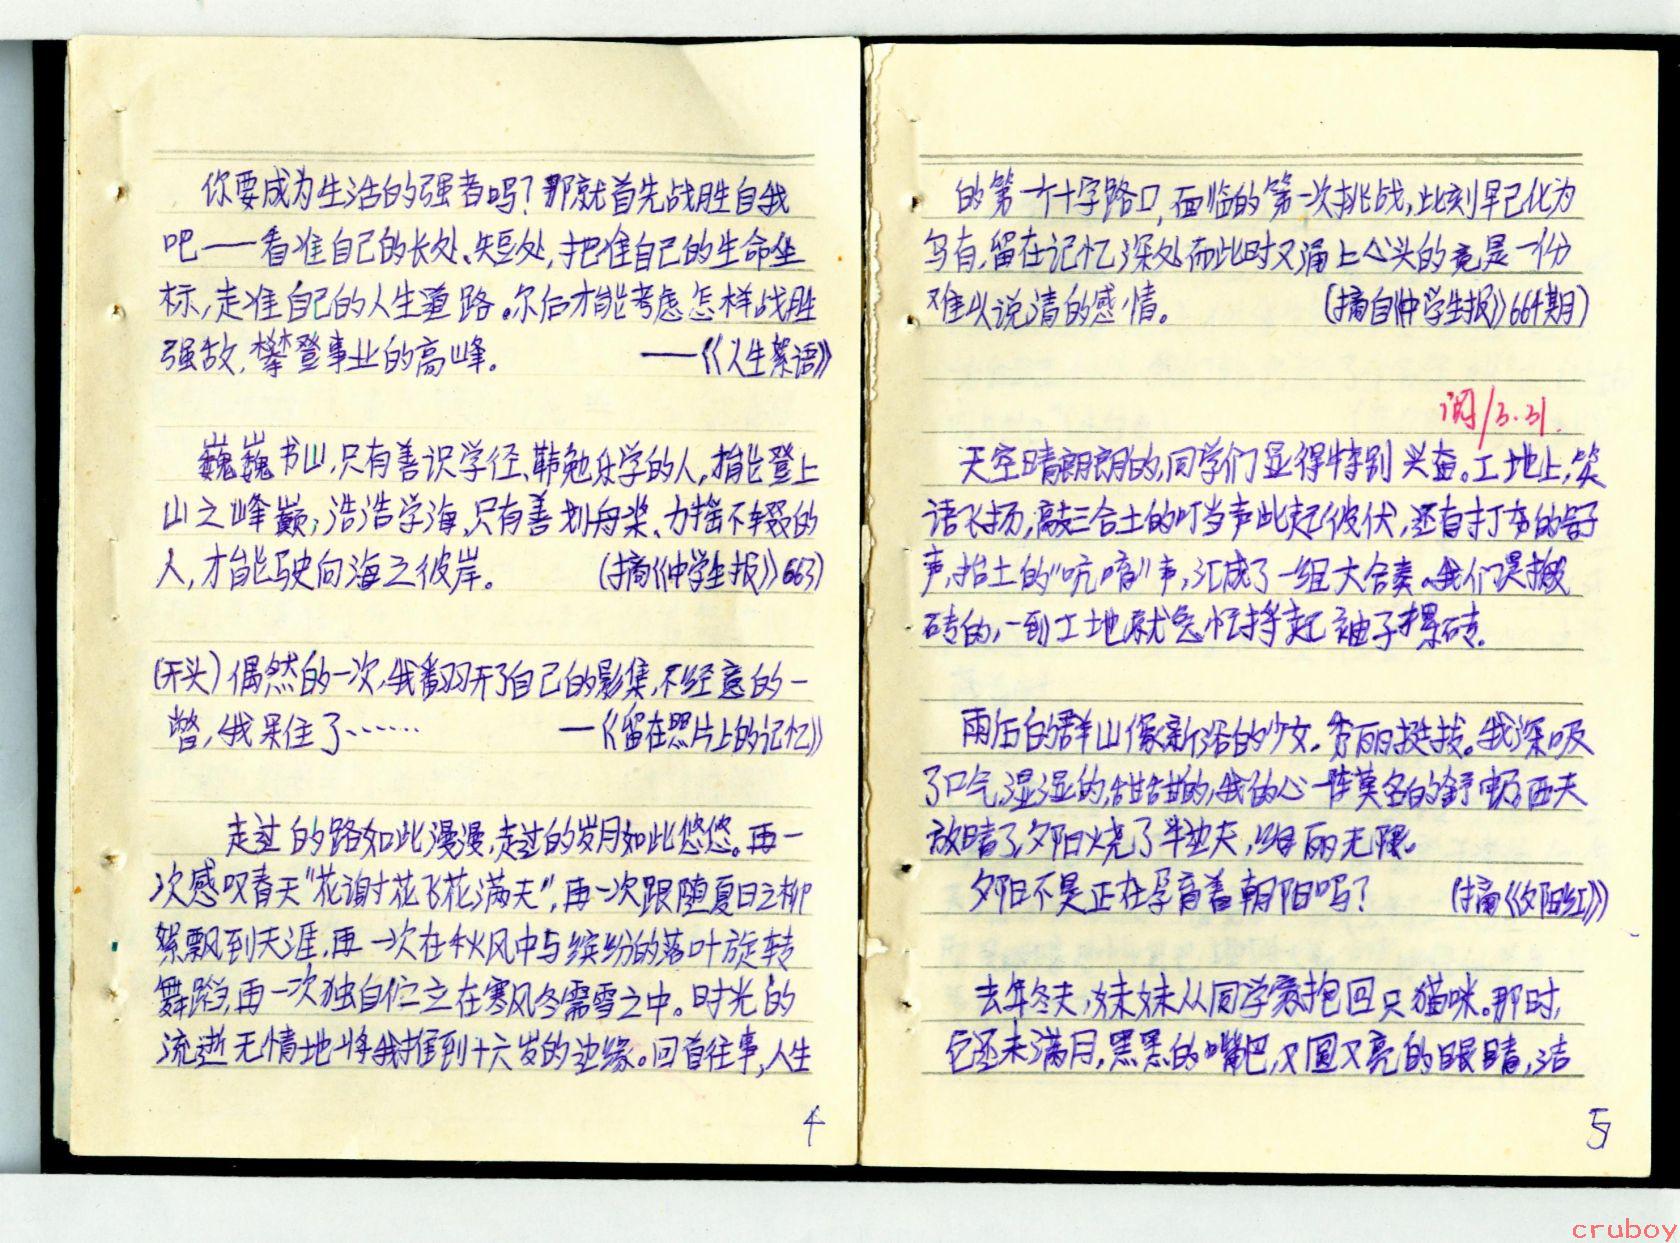 你要成为生活的强者吗？那就首先战胜自我
吧——看准自己的长处、短处，把准自己的生命坐
标，走准自己的人生道路。尔后才能考虑怎样战胜
强敌，攀登事业的高峰。 ——《人生絮语》
巍巍书山，只有善识学径、勤勉乐学的人，才能登上
山之峰巅；浩浩学海，只有善划舟桨、力摇不辍的
人，才能驶向海之彼岸。 （摘《中学生报》663）
（开头）偶然的一次，我翻开了自己的影集，不经意的一
瞥，我呆住了…… —《留在照片上的记忆》
走过的路如此漫漫，走过的岁月如此悠悠。再一
次感叹春天“花谢花飞花满天”，再一次跟随夏日之柳
絮飘到天涯，再一次在秋风中与缤纷的落叶旋转
舞蹈，再一次独自伫立在寒风冬雪之中。时光的
流逝无情地将我推到十六岁的边缘。回首往事，人生
4
的第一个十字路口，面临的第一次挑战，此刻早已化为
乌有，留在记忆深处而此时又涌上心头的竟是一份
难以说清的感情。 （摘自《中学生报》664期）
阅/3.31.
天空晴朗朗的，同学们显得特别兴奋。工地上，笑
语飞扬，敲三合土的叮当声此起彼伏，还有打夯的号子
声，抬土的“吭唷”声，汇成了一组大合奏。我们是搬
砖的，一到工地就急忙捋起袖子摞砖。
雨后的群山像新浴的少女，秀丽挺拔。我深吸
了口气，湿湿的，甜甜的，我的心一阵莫名的舒畅；西天
放晴了，夕阳烧了半边天，绚丽无限。
夕阳不是正在孕育着朝阳吗？ （摘《夕阳红》）
去年冬天，妹妹从同学家抱回只猫咪。那时，
它还未满月，黑黑的嘴巴，又圆又亮的眼睛，洁
5
cruboy